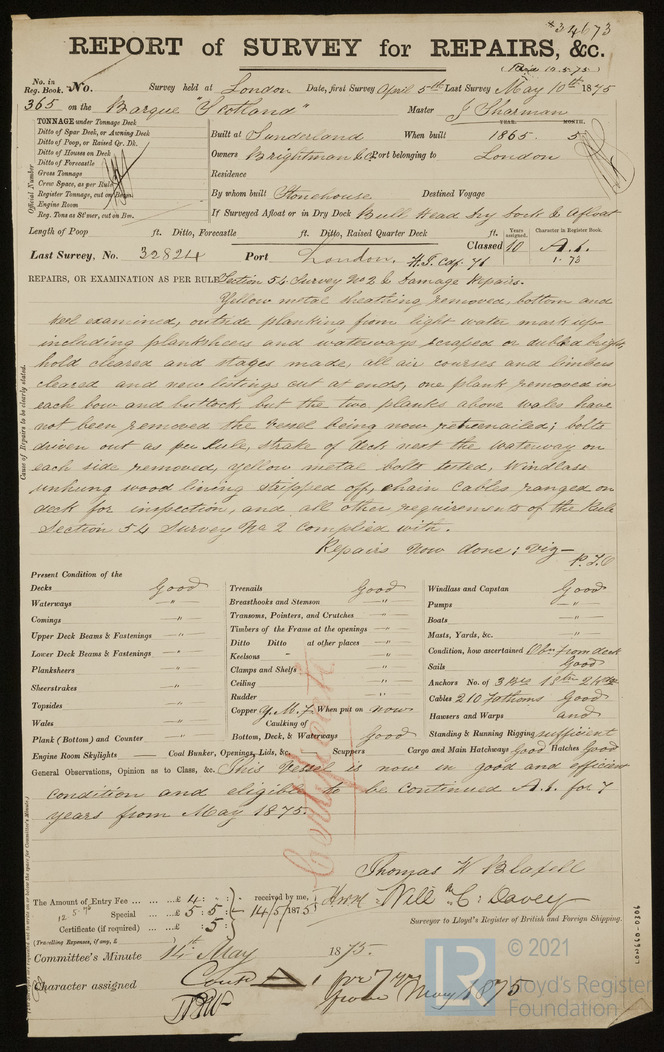 34673
REPORT of SURVEY for REPAIRS, &c.
(Paid 14.5.75)
No. in Reg. Book. No. Survey held at London Date, first Survey April 5th Last Survey May 10th 1875
365 on the Barque "Scotland" Master J Sharman
TONNAGE under Tonnage Deck
Ditto of Spar Deck, or Awning Deck
Ditto of Poop, or Raised Qr. Dk.
Ditto of Houses on Deck
Ditto of Forecastle
Gross Tonnage
Crew Space, as per Rule
Register Tonnage, cut on Beam
Engine Room
Reg. Tons as St'mer, cut on Bm.
Official Number
YEAR. MONTH.
Built at Sunderland When built 1865. 5
Owners Brightman & Co Port belonging to London
Residence
By whom built Stonehouse Destined Voyage
If Surveyed Afloat or in Dry Dock Bull Head Dry Dock & Afloat
Length of Poop ft. Ditto, Forecastle ft. Ditto, Raised Quarter Deck ft.
Years assigned. Character in Register Book.
Last Survey, No. 32824 Port London. Classed 10 A.1.
1. 73
REPAIRS, OR EXAMINATION AS PER RULE Section 54 Survey No 2 & Damage Repairs.
Yellow metal sheathing removed, bottom and
keel examined, outside planking from light water mark up
including planksheers and waterways scraped or dubbed bright,
hold cleared and stages made, all air courses and limbers
cleared and new listings out at ends, one plank removed in
each bow and buttock, but the two planks above wales have
not been removed the vessel being now retreenailed; bolts
driven out as per Rule, strake of deck next the waterway on
each side removed, yellow metal bolts tested, Windlass
unhung wood lining stripped off, chain cables ranged on
deck for inspection, and all other requirements of the Rule
Section 54 Survey No 2 complied with.
Repairs now done; viz—
P.T.O
Cause of Repairs to be clearly stated.
Present Condition of the
Decks Good
Waterways "
Comings "
Upper Deck Beams & Fastenings "
Lower Deck Beams & Fastenings "
Planksheers "
Sheerstrakes "
Topsides "
Wales "
Plank (Bottom) and Counter "
Treenails Good
Breasthooks and Stemson "
Transoms, Pointers, and Crutches "
Timbers of the Frame at the openings "
Ditto Ditto at other places "
Keelsons "
Clamps and Shelfs "
Ceiling "
Rudder "
Copper Y.M.F. When put on now
Caulking of
Bottom, Deck, & Waterways Good
Windlass and Capstan Good
Pumps "
Boats "
Masts, Yards, &c. "
Condition, how ascertained Obn from deck
Sails Good
Anchors No. of
Cables 210 Fathoms Good
Hawsers and Warps and
Standing & Running Rigging sufficient
Engine Room Skylights Coal Bunker, Openings, Lids, &c. Scuppers Cargo and Main Hatchways Good Hatches Good
General Observations, Opinion as to Class, &c. This Vessel is now in good and efficient
condition and eligible to be continued A.1. for 7
years from May 1875.
Thomas W Blaxell
The Amount of Entry Fee £ 4 : : received by me,
Special £ 5 : 5 : 14/5/1875 Will m C. Davey
Certificate (if required) £ : 5 : Surveyor to Lloyd's Register of British and Foreign Shipping.
(Travelling Expenses, if any, £
Committee's Minute 14th May 1875.
Character assigned Contd A 1 for 7 yrs
from May 1875
LON660-0306
© 2021
LR
Lloyd's Register
Foundation